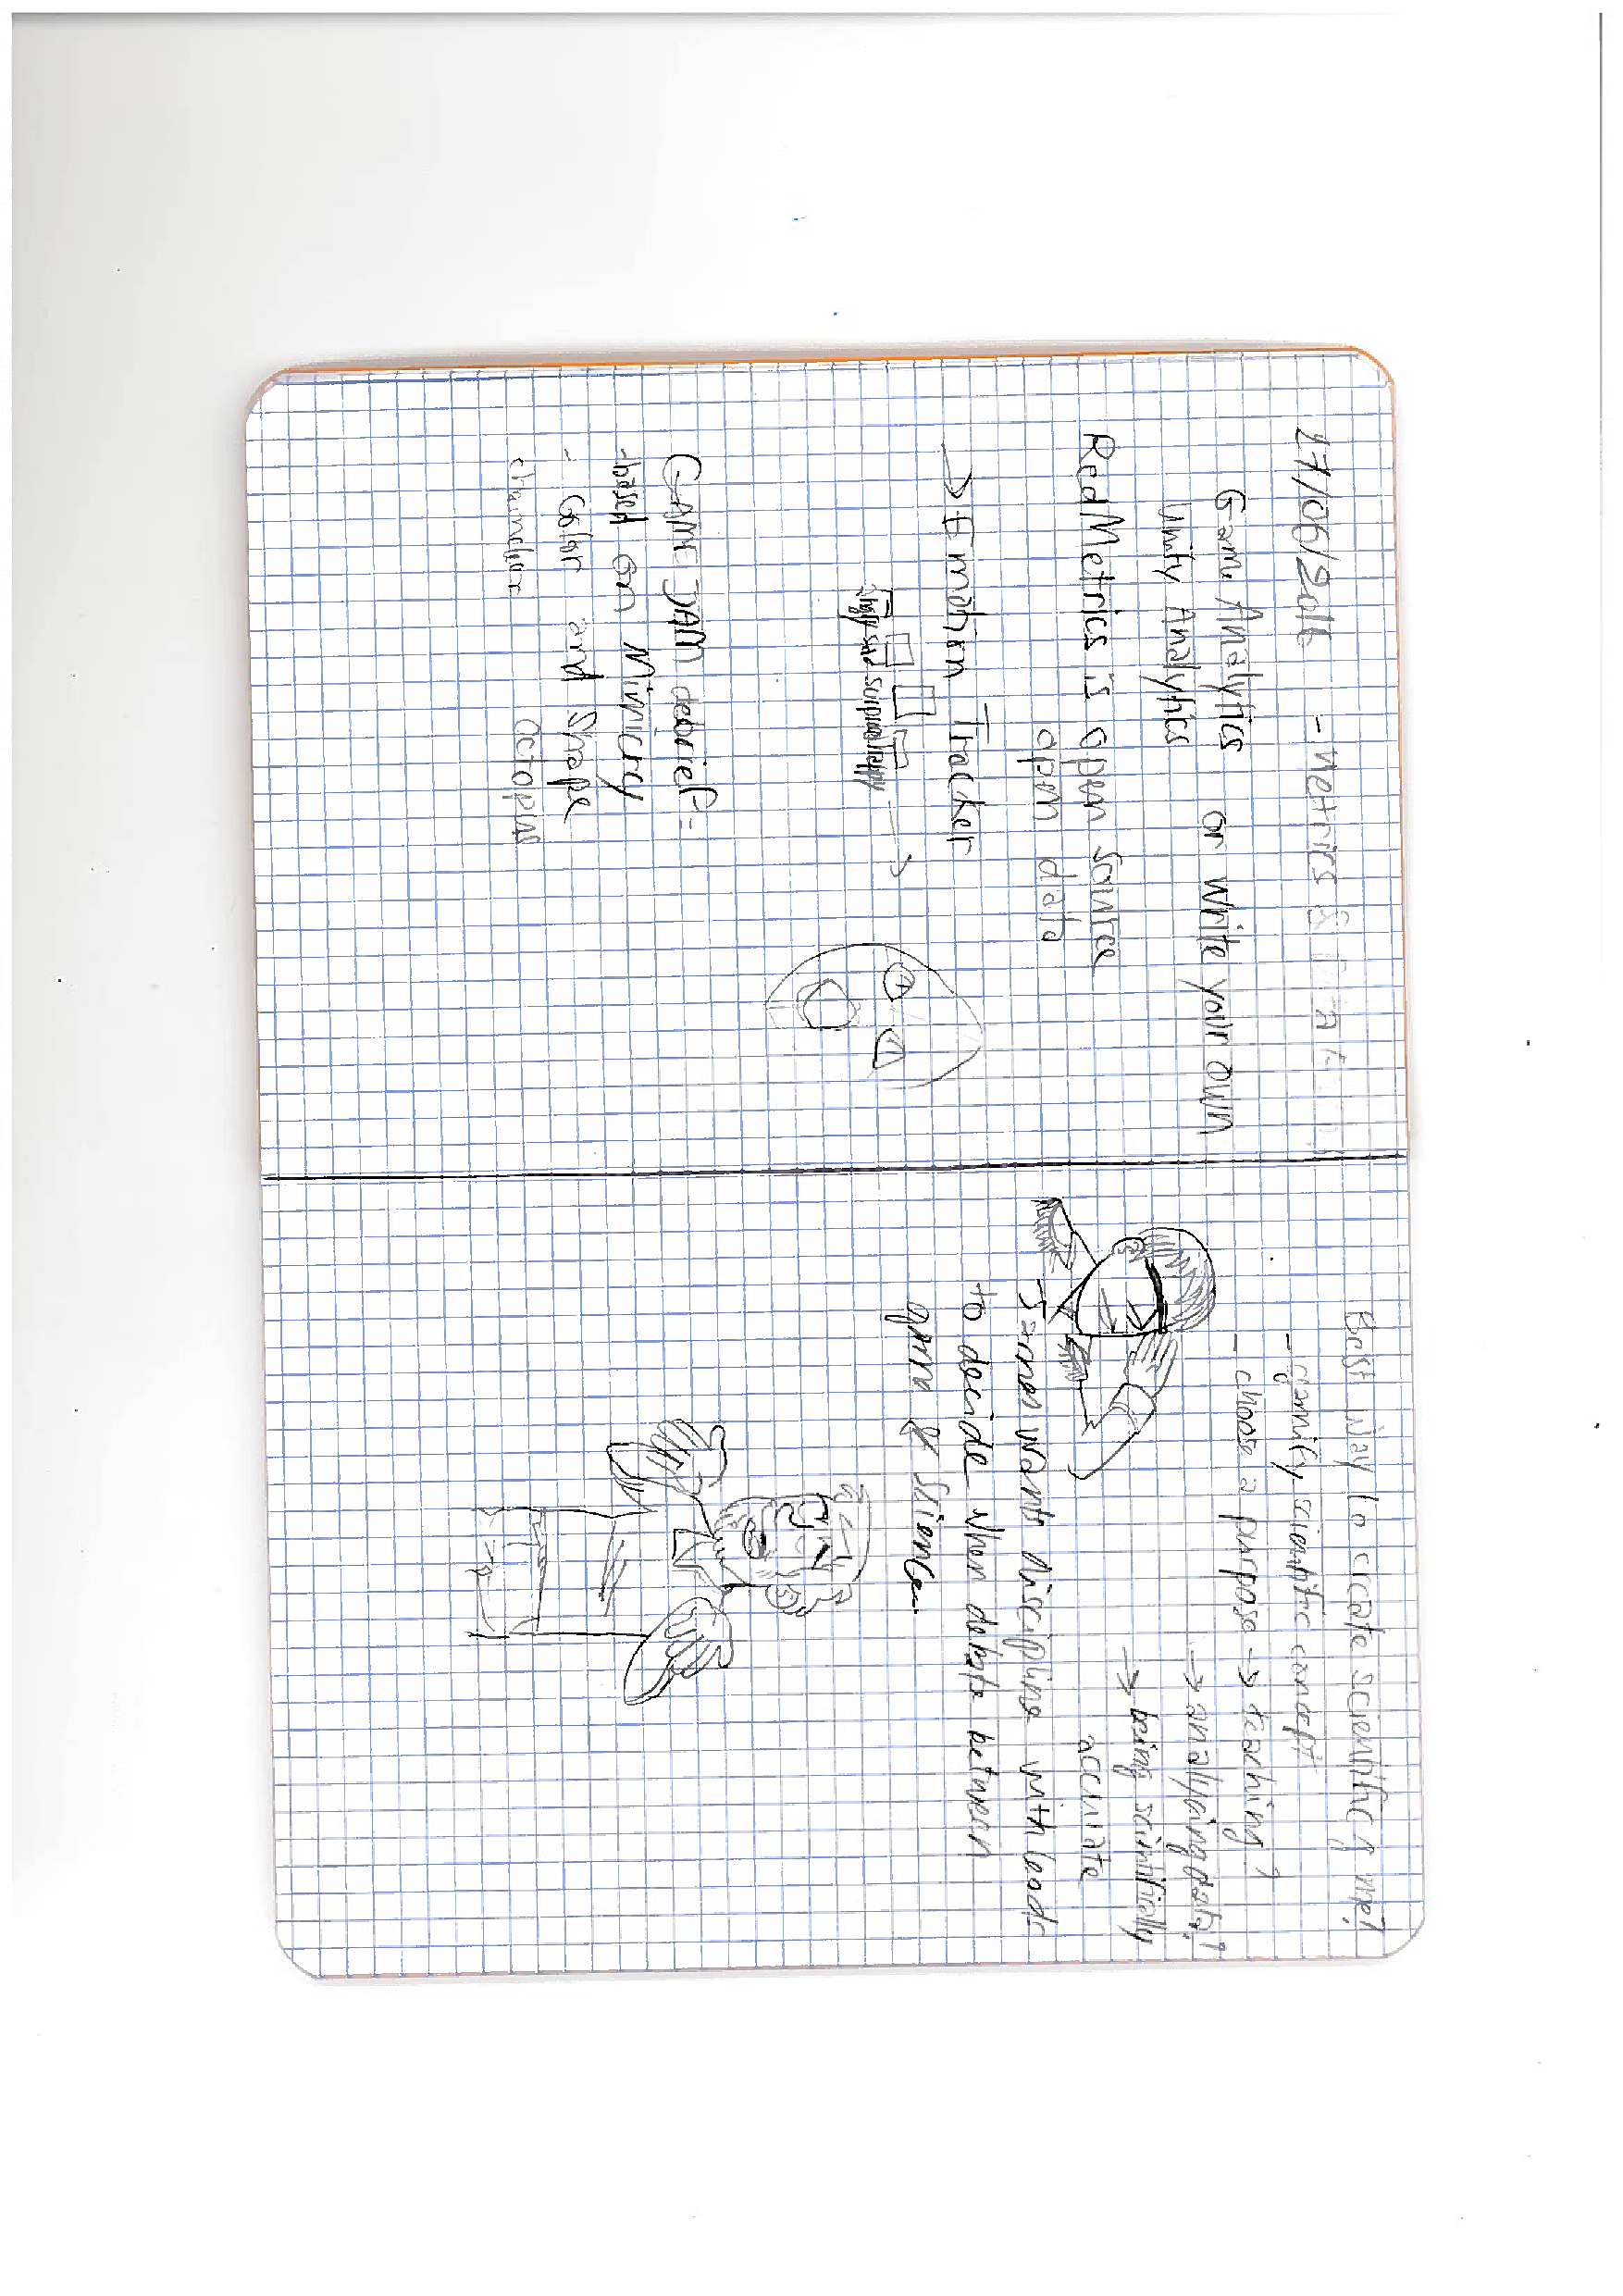 27/06/2016 - Metrics & Data
Game Analytics or write your own
Unity Analytics
RedMetrics is open source
open data
→ Emotion Tracker
Angry sad surprised happy
GAME JAM debrief:
-based on Mimicry
- Color and Shape
chameleon octopus
Best way to create scientific game?
- gamify scientific concept
- choose a purpose → teaching?
→ analyzing data?
→ being scientifically
accurate
Jesse wants discipline with leads
to decide when debate between
game & science.